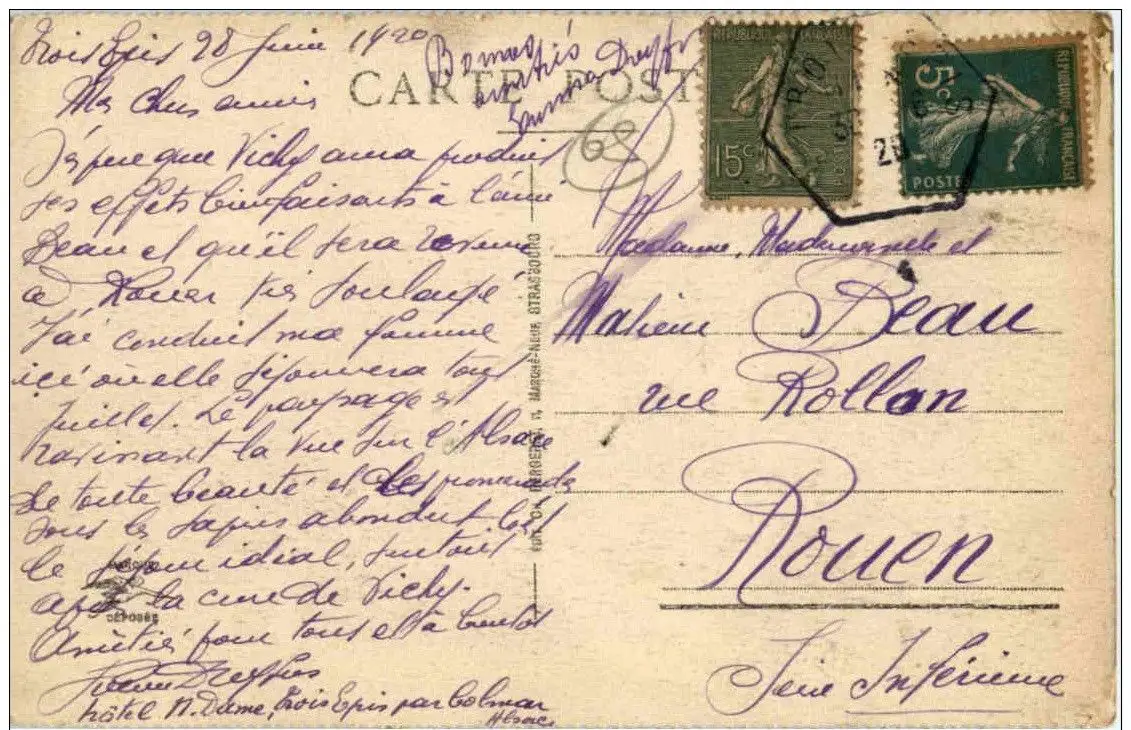 Trois Epis 28 Juin 1920
Mes chers amis
J'espère que Vichy aura produit
ses effets bienfaisants à l'ami
Beau et qu'il sera revenu
à Rouen très soulagé.
J'ai conduit ma femme
ici où elle séjournera tout
Juillet. Le paysage est
ravissant la vue sur l'Alsace
de toute beauté et les promenades
sous les sapins abondent. C'est
le séjour idéal, surtout
après la cure de Vichy.
Amitiés pour tous et à bientôt
Dreyfus
hôtel N. Dame, Trois Epis par Colmar
Alsace
Bonnes
amitiés
Dreyfus
CARTE POST
68
REPUBLIQUE FRANÇAISE
15c
5c
POSTES
REPUBLIQUE FRANÇAISE
Madame, Mademoiselle et
Monsieur Beau
rue Rollon
Rouen
Seine Inférieure
MARCHÉ-NEUF STRASBOURG
DÉPOSÉE